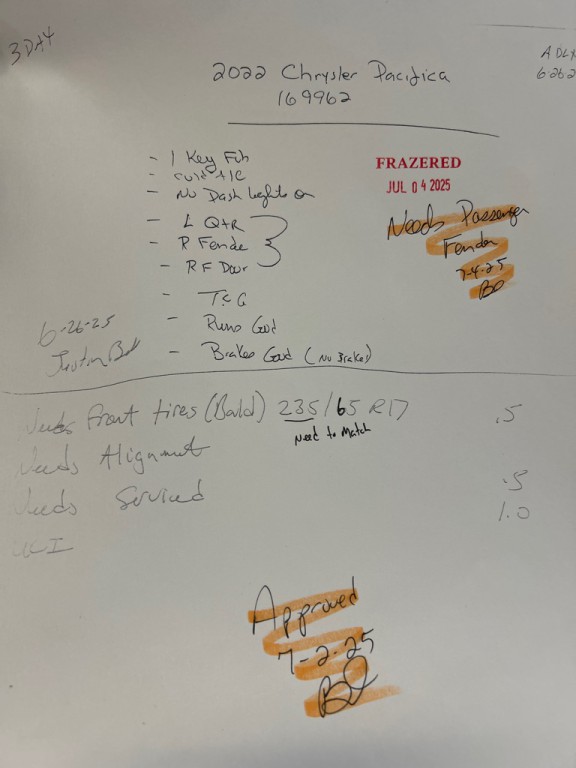 3 DAY
6-26-2
2022 Chrysler Pacifica
169962
- 1 Key Fob
- Cold A/C
- No Dash Lights on
- L QTR
- R Fender
- RF Door
- T&G
- Runs Good
- Brakes Good (No Brakes)
FRAZERED
JUL 04 2025
Needs Passenger
Fender
7-4-25
6-26-25
Needs Front tires (Bald) 235/65 R17 .5
Need to Match
Needs Alignment
Needs Serviced .5
1.0
Approved
7-2-25